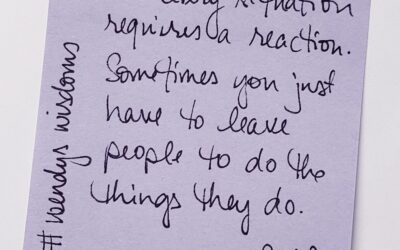 situation
requires a reaction.
Sometimes you just
have to leave
people to do the
things they do.
#wendys wisdoms